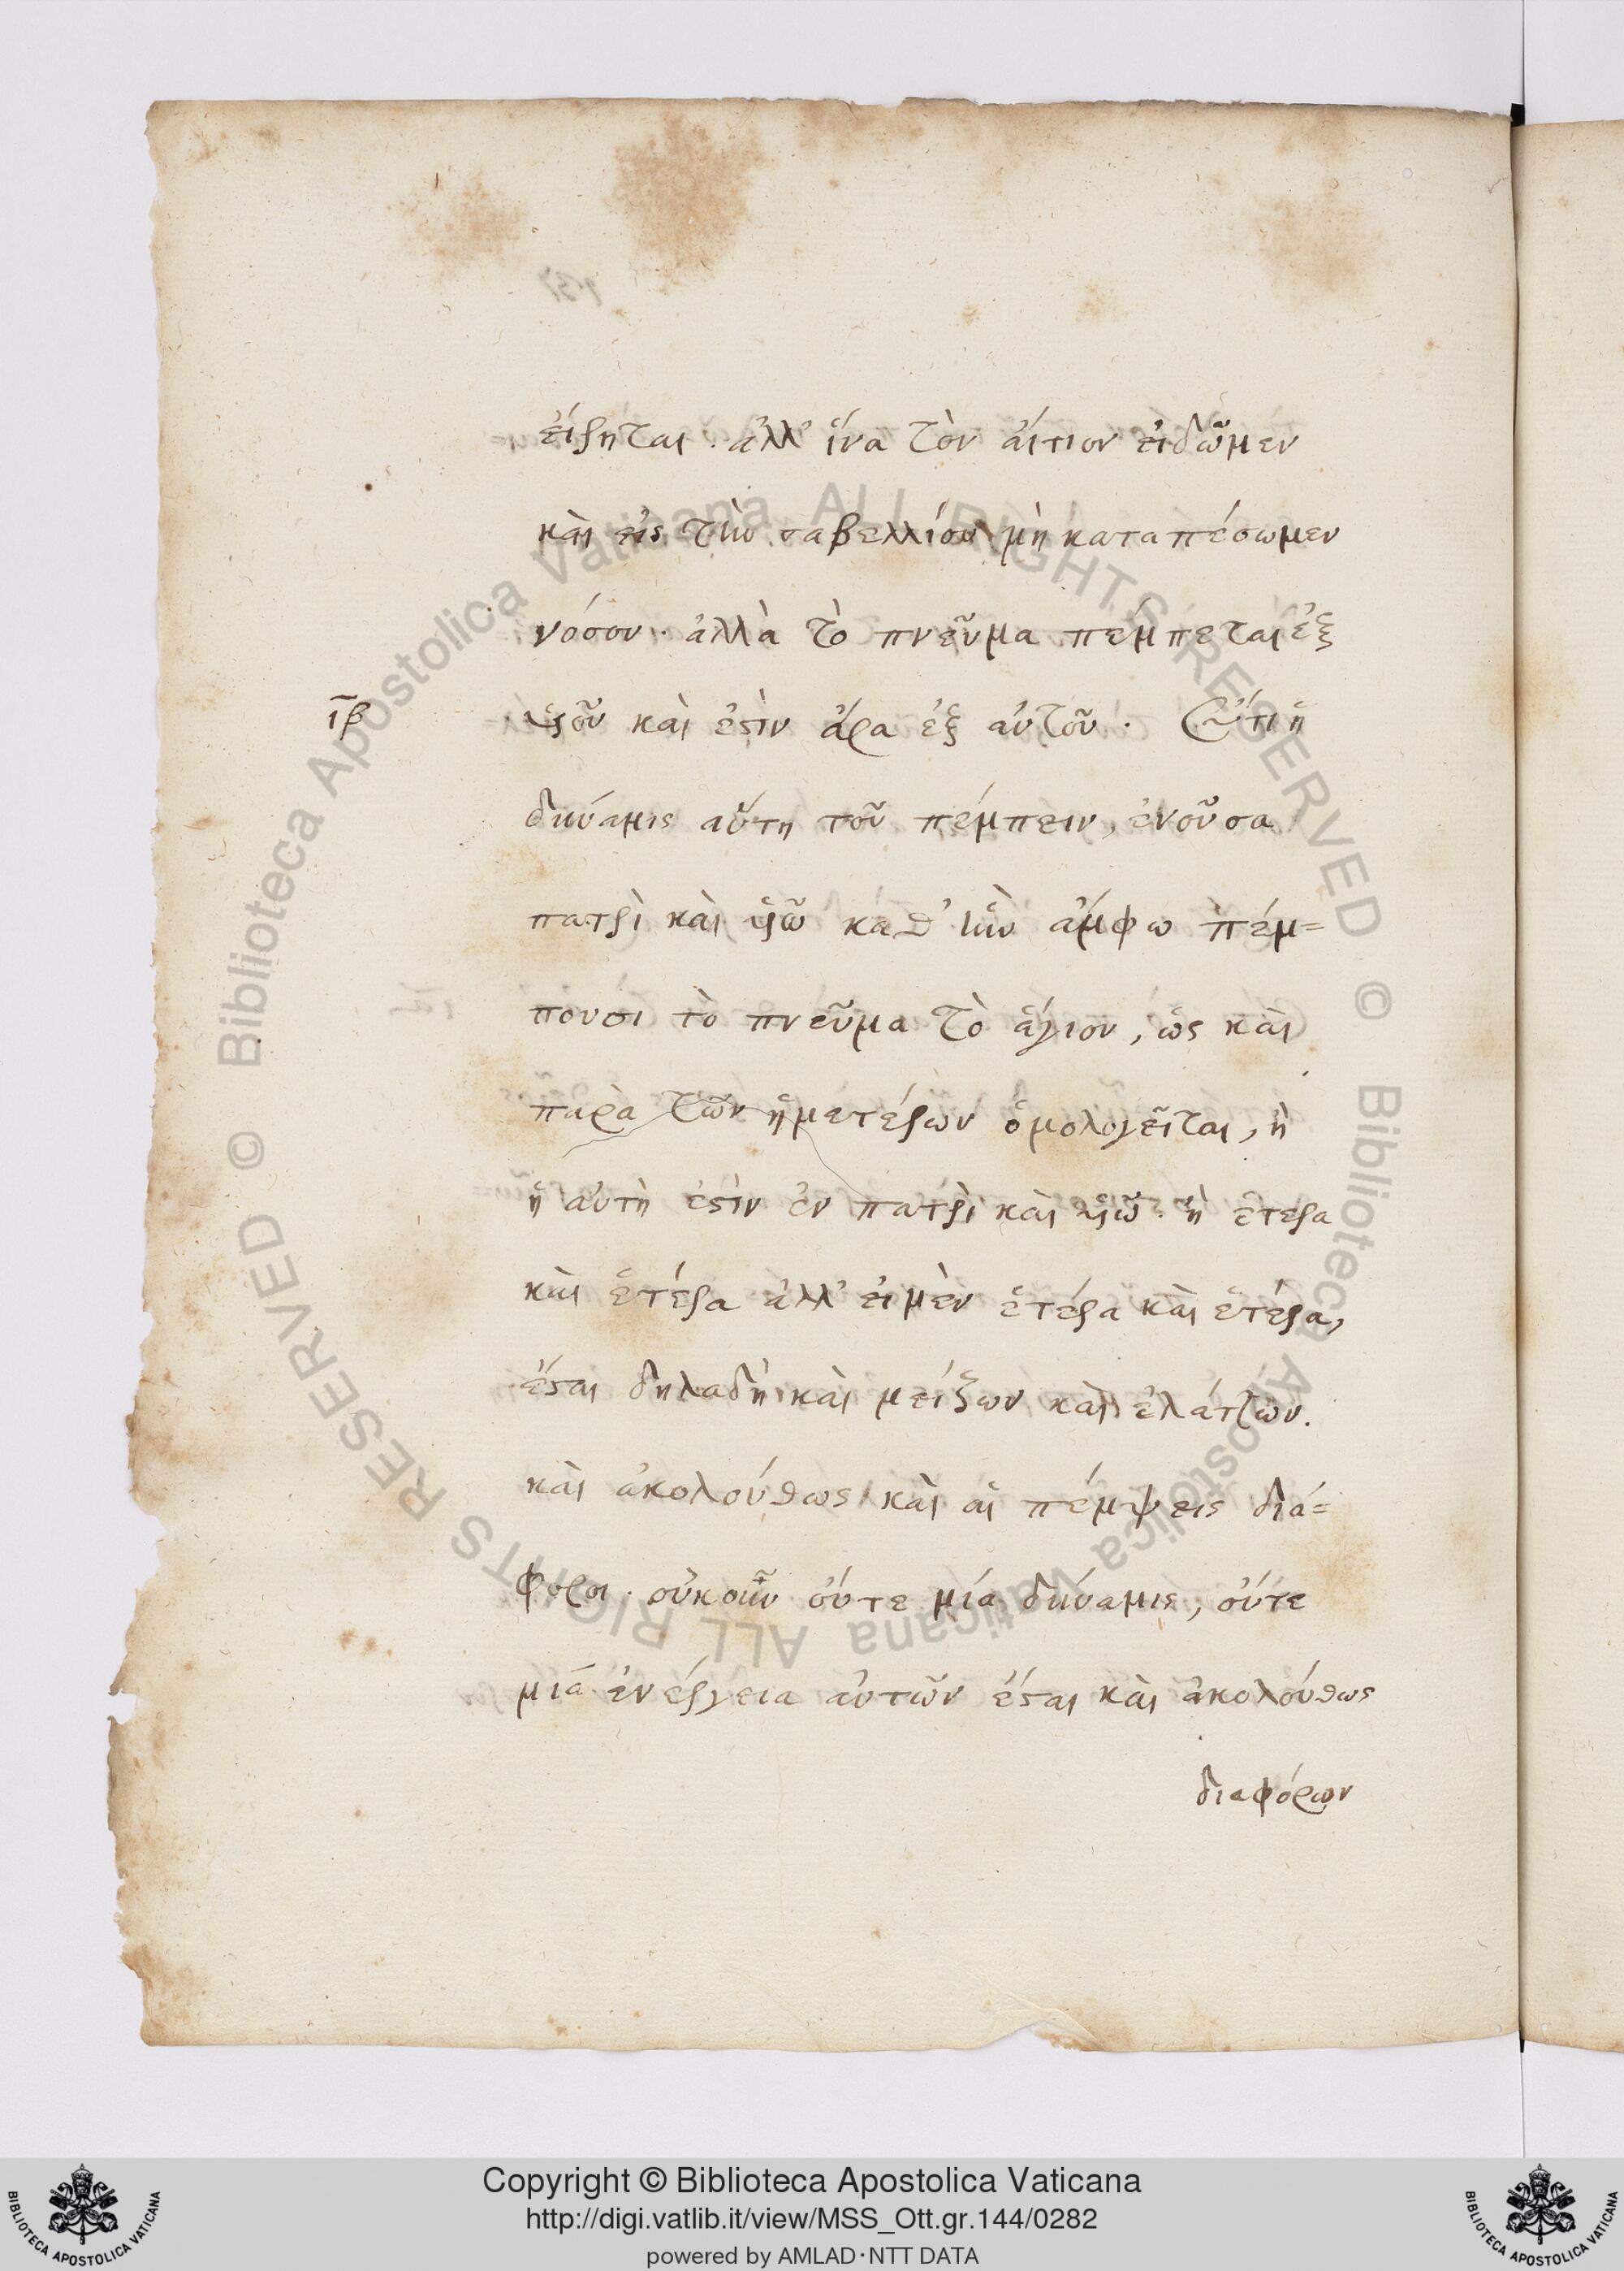 εἴρηται· ἀλλ' ἵνα τὸν αἴτιον εἰδῶμεν
καὶ εἰς τὴν σαβελλίου μὴ καταπέσωμεν
νόσον· ἀλλὰ τὸ πνεῦμα πέμπεται ἐξ
ιβ υἱοῦ καὶ ἐστὶν ἄρα ἐξ αὐτοῦ. Ἔτι ἡ
δύναμις αὕτη τοῦ πέμπειν, ἐνοῦσα
πατρὶ καὶ υἱῶ καθ' ἣν ἄμφω πέμ=
πουσι τὸ πνεῦμα τὸ ἅγιον, ὡς καὶ
παρὰ τῶν ἡμετέρων ὁμολογεῖται, ἢ
ἡ αὐτὴ ἐστὶν ἐν πατρὶ καὶ υἱῶ· ἢ ἑτέρα
καὶ ἑτέρα ἀλλ' εἰ μὲν ἑτέρα καὶ ἑτέρα,
ἔσται δηλαδὴ καὶ μείζων καὶ ἐλάττων.
καὶ ἀκολούθως καὶ αἱ πέμψεις διά=
φοροι· οὐκοῦν οὔτε μία δύναμις, οὔτε
μία ἐνέργεια αὐτῶν ἔσται καὶ ἀκολούθως
διαφόρων
Copyright © Biblioteca Apostolica Vaticana
http://digi.vatlib.it/view/MSS_Ott.gr.144/0282
powered by AMLAD·NTT DATA
BIBLIOTECA APOSTOLICA VATICANA
BIBLIOTECA APOSTOLICA VATICANA
© Biblioteca Apostolica Vaticana ALL RIGHTS RESERVED
© Biblioteca Apostolica Vaticana ALL RIGHTS RESERVED